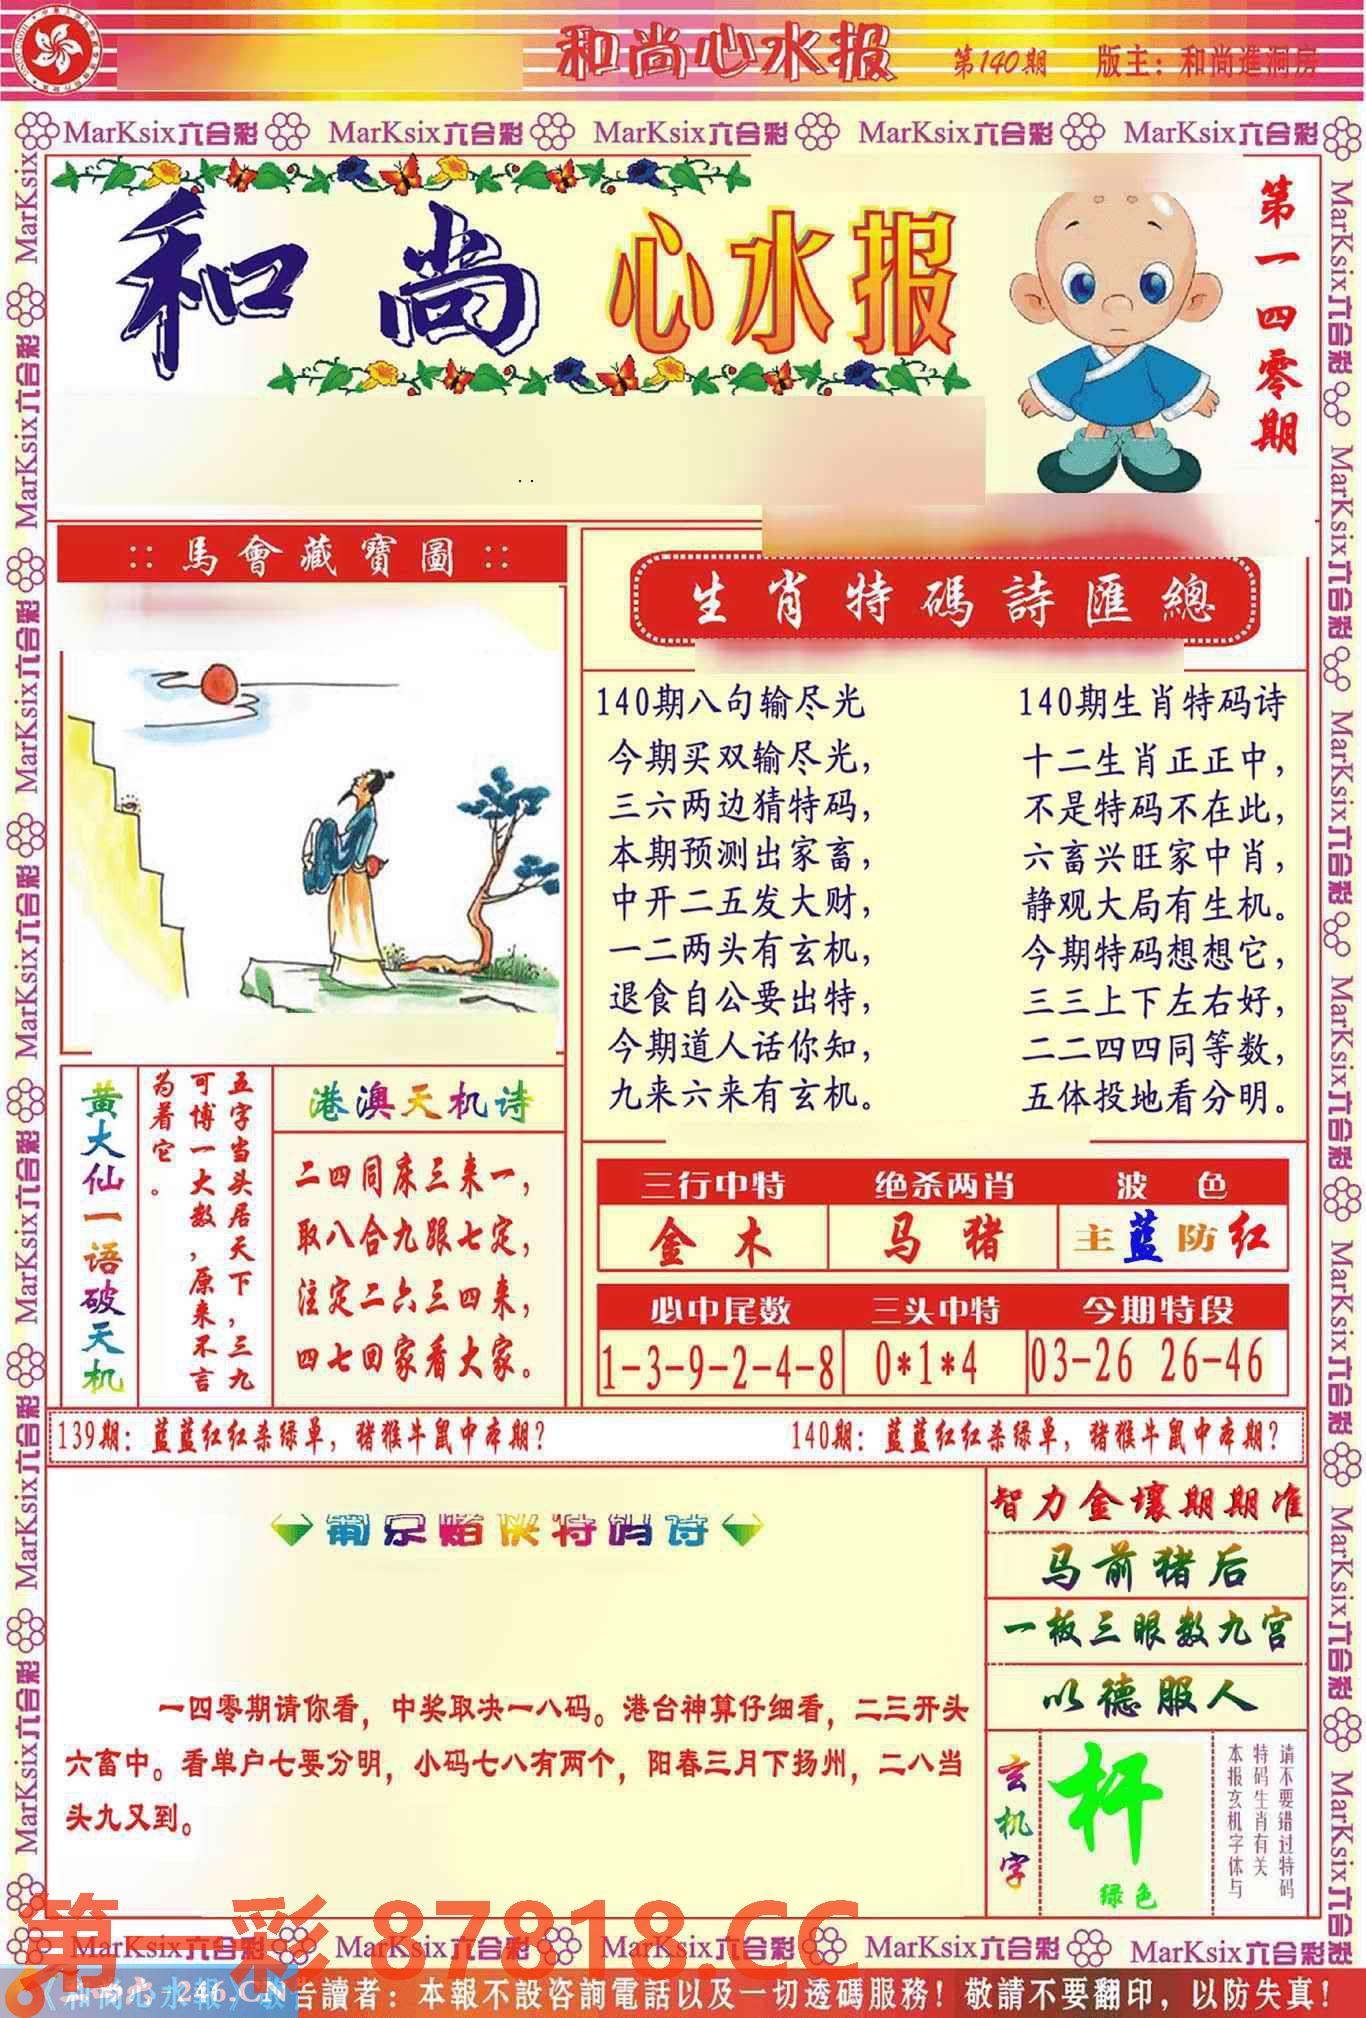 和尚心水报 第140期 版主：和尚進洞房
MarKsix六合彩 MarKsix六合彩 MarKsix六合彩 MarKsix六合彩 MarKsix六合彩
和尚 心水报
第一四零期
:: 馬會藏寶圖 ::
生肖特碼詩匯總
140期八句输尽光
今期买双输尽光，
三六两边猜特码，
本期预测出家畜，
中开二五发大财，
一二两头有玄机，
退食自公要出特，
今期道人话你知，
九来六来有玄机。
140期生肖特码诗
十二生肖正正中，
不是特码不在此，
六畜兴旺家中肖，
静观大局有生机。
今期特码想想它，
三三上下左右好，
二二四四同等数，
五体投地看分明。
黄大仙一语破天机
五字当头居天下，三九
可博一大数，原来不言
为着它。
港澳天机诗
二四同床三来一，
取八合九跟七定，
注定二六三四来，
四七回家看大家。
三行中特 绝杀两肖 波 色
金 木 马 猪 主蓝防红
必中尾数 三头中特 今期特段
1-3-9-2-4-8 0*1*4 03-26 26-46
139期：蓝蓝红红杀绿单，猪猴牛鼠中本期？ 140期：蓝蓝红红杀绿单，猪猴牛鼠中本期？
葡京赌侠特码诗
一四零期请你看，中奖取决一八码。港台神算仔细看，二三开头
六畜中。看单户七要分明，小码七八有两个，阳春三月下扬州，二八当
头九又到。
智力金壤期期准
马前猪后
一板三眼数九宫
以德服人
玄机字
杆
绿色
请不要错过特码
特码生肖有关
本报玄机字体与
第一彩 87818.CC
MarKsix六合彩 MarKsix六合彩 MarKsix六合彩 MarKsix六合彩 MarKsix六合彩
246.CN
告讀者：本報不設咨詢電話以及一切透碼服務！敬請不要翻印，以防失真！